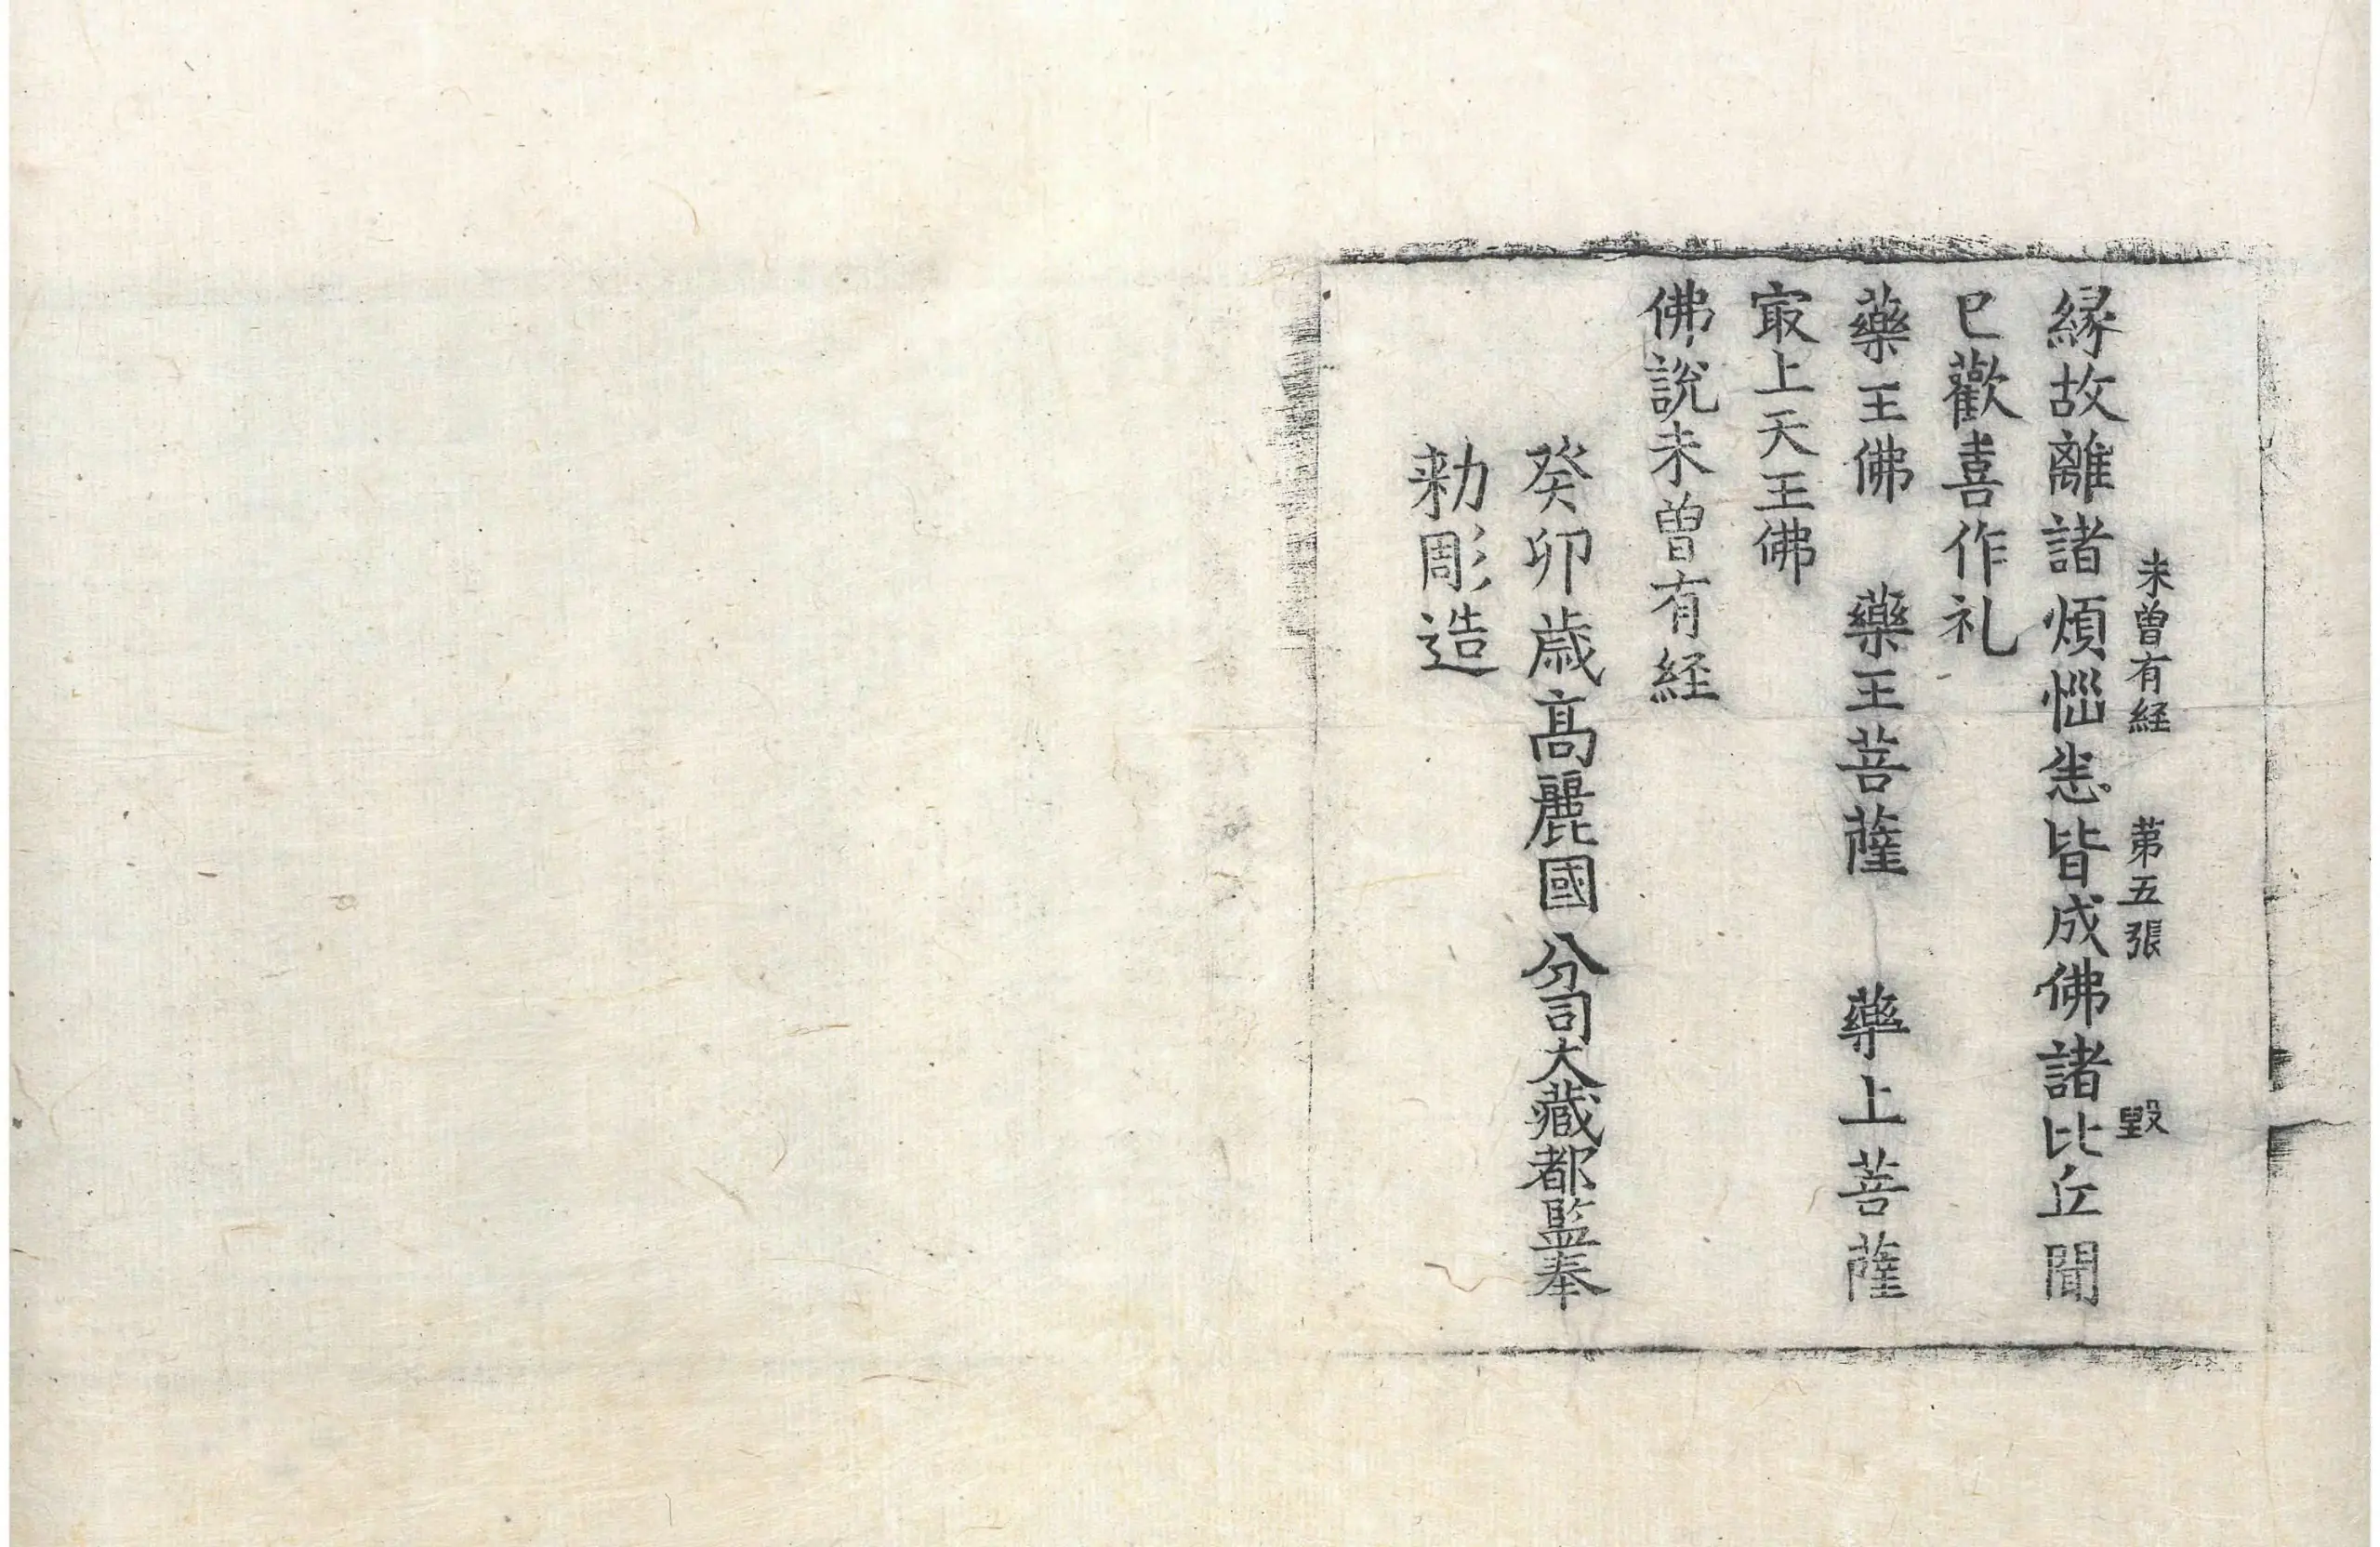 未曽有経　第五張　毀
縁故離諸煩惱恙皆成佛諸比丘聞
已歡喜作礼
藥王佛　藥王菩薩　藥上菩薩
㝡上天王佛
佛說未曽有経
癸卯歳高麗國分司大藏都監奉
勑彫造